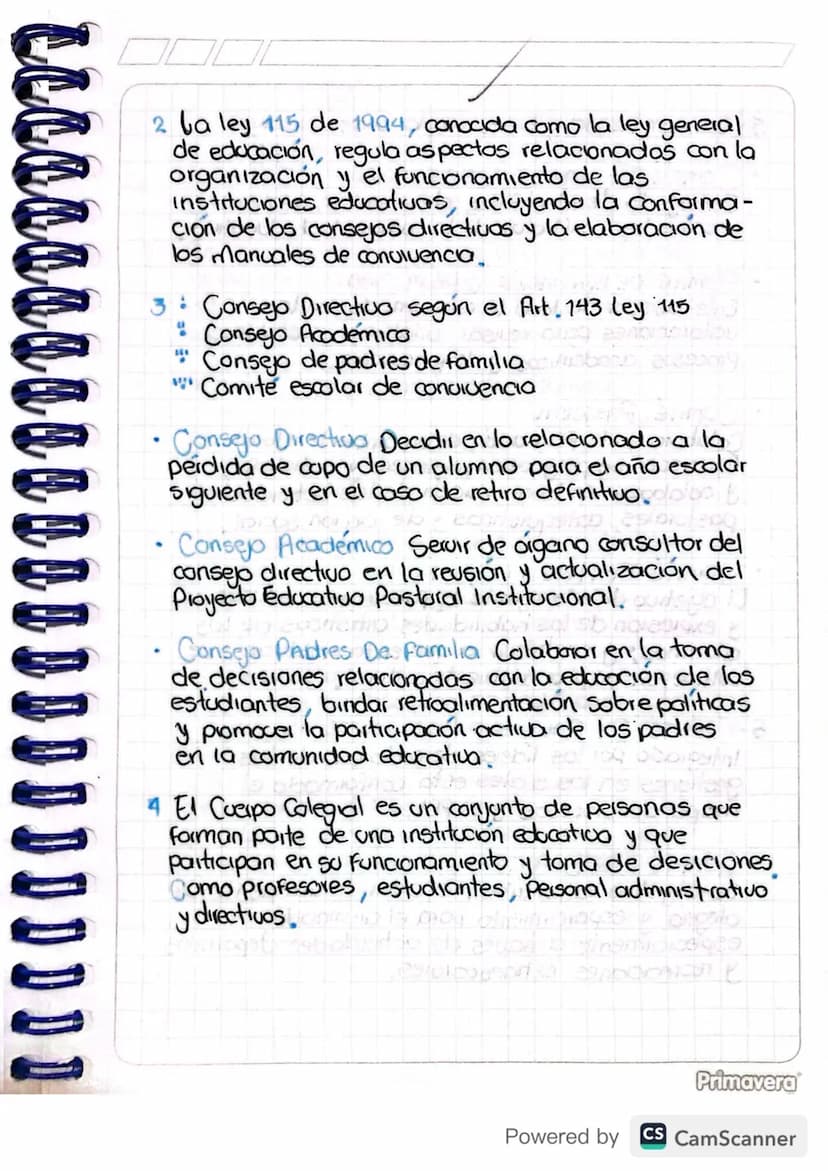 2 La ley 115 de 1994, conocida como la ley general
de educación, regula aspectos relacionados con la
organización y el funcionamiento de las
instituciones educativas, incluyendo la conforma-
ción de los consejos directivos y la elaboración de
los Manuales de convivencia.
3 : Consejo Directivo según el Art. 143 Ley 115
Consejo Académico
Consejo de padres de familia
Comité escolar de convivencia
• Consejo Directivo Decidir en lo relacionado a la
pérdida de cupo de un alumno para el año escolar
siguiente y en el caso de retiro definitivo.
• Consejo Académico Servir de órgano consultor del
consejo directivo en la revisión y actualización del
Proyecto Educativo Pastoral Institucional.
• Consejo Padres De Familia Colaborar en la toma
de decisiones relacionadas con la educación de los
estudiantes, bindar retroalimentación sobre políticas
y promover la participación activa de los padres
en la comunidad educativa.
4 El Cuerpo Colegial es un conjunto de personas que
forman parte de una institución educativa y que
participan en su funcionamiento y toma de desiciones.
Como profesores, estudiantes, Personal administrativo
y directivos.
Primavera
Powered by CS CamScanner